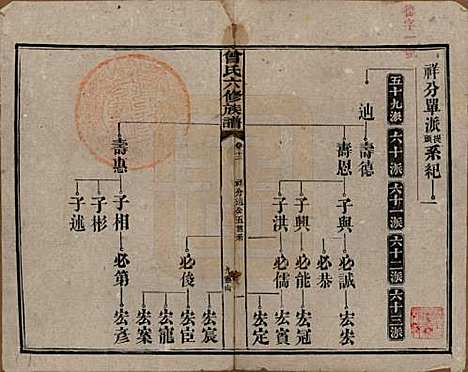 祥分單派提頭系紀一
五十九派 六十派 六十一派 六十二派 六十三派
迪 壽德 子興 必誠 宏宏
必恭
壽恩 子興 必能 宏冠
子洪 必儒 宏賓
宏定
曾氏六修族譜
宏宸
必俊 宏臣
宏龍
宏案
壽惠 子相 必第 宏彥
子彬
子述